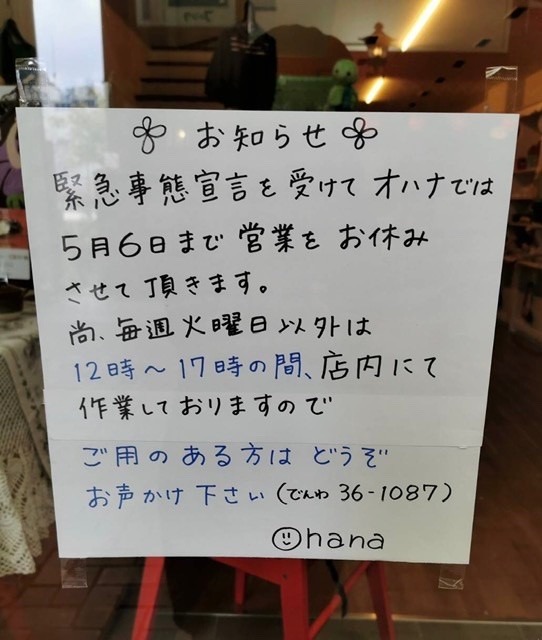 お知らせ
緊急事態宣言を受けてオハナでは
5月6日まで営業をお休み
させて頂きます。
尚、毎週火曜日以外は
12時～17時の間、店内にて
作業しておりますので
ご用のある方はどうぞ
お声かけ下さい(でんわ 36-1087)
Ohana